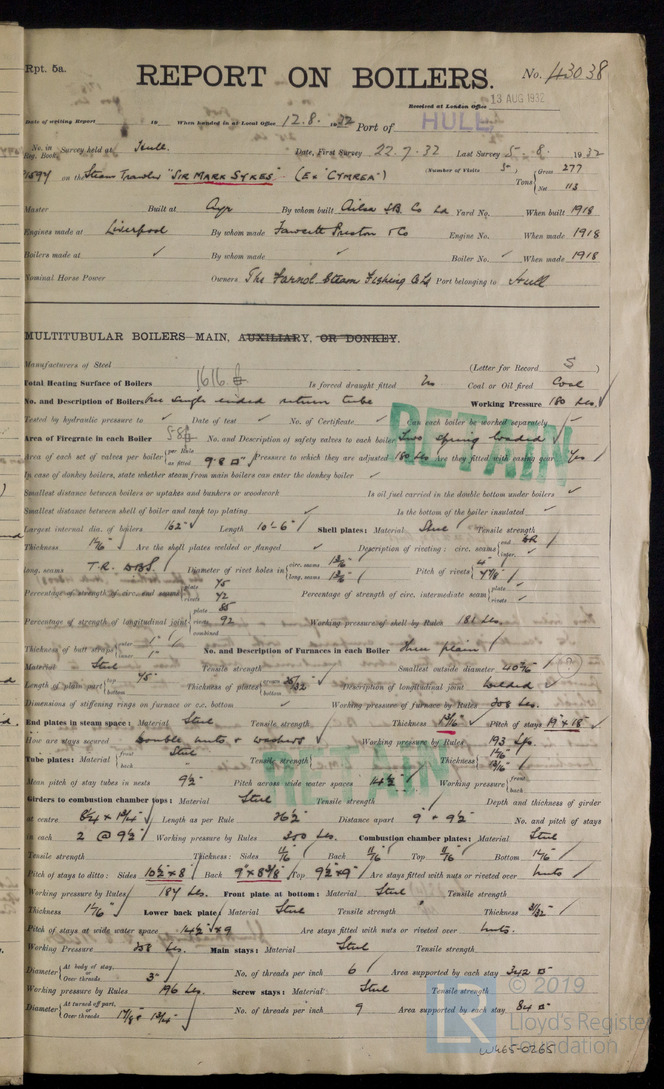 Rpt. 5a.
REPORT ON BOILERS.
No. 43038
Received at London Office 13 AUG 1932
Date of writing Report 19 When handed in at Local Office 12.8. 1932 Port of HULL
No. in Reg. Book Survey held at Hull. Date, First Survey 22.7.32 Last Survey 5.8. 1932
on the Steam Trawler "SIR MARK SYKES" (Ex "CYMREA") (Number of Visits 5) Tons Gross 277 Net 113
Master Built at Ayr By whom built Ailsa SB. Co Ld Yard No. When built 1918
Engines made at Liverpool By whom made Fawcett Preston & Co Engine No. When made 1918
Boilers made at ✓ By whom made ✓ Boiler No. ✓ When made 1918
Nominal Horse Power Owners The Farnol Steam Fishing Co Ld Port belonging to Hull
MULTITUBULAR BOILERS—MAIN, AUXILIARY, OR DONKEY.
Manufacturers of Steel (Letter for Record S)
Total Heating Surface of Boilers 1616 Is forced draught fitted No Coal or Oil fired Coal
No. and Description of Boilers One single ended return tube Working Pressure 180 Lbs.
Tested by hydraulic pressure to ✓ Date of test ✓ No. of Certificate ✓ Can each boiler be worked separately
Area of Firegrate in each Boiler 58 No. and Description of safety valves to each boiler Two Spring loaded
Area of each set of valves per boiler per Rule as fitted 9.8 Pressure to which they are adjusted 180 Lbs Are they fitted with easing gear Yes
In case of donkey boilers, state whether steam from main boilers can enter the donkey boiler ✓
Smallest distance between boilers or uptakes and bunkers or woodwork Is oil fuel carried in the double bottom under boilers ✓
Smallest distance between shell of boiler and tank top plating ✓ Is the bottom of the boiler insulated ✓
Largest internal dia. of boilers 162" Length 10'-6" Shell plates: Material Steel Tensile strength
Thickness Are the shell plates welded or flanged ✓ Description of riveting: circ. seams end DR inter.
long. seams T.R. DBS. Diameter of rivet holes in circ. seams long. seams Pitch of rivets
Percentage of strength of circ. end seams plate 45 rivets 42 Percentage of strength of circ. intermediate seam plate rivets
Percentage of strength of longitudinal joint plate 85 rivets 92 combined Working pressure of shell by Rules 181 Lbs.
Thickness of butt straps outer 1" inner 1" No. and Description of Furnaces in each Boiler three plain
Material Steel Tensile strength Smallest outside diameter
Length of plain part top 75" bottom Thickness of plates crown bottom 25/32 Description of longitudinal joint welded
Dimensions of stiffening rings on furnace or c.c. bottom ✓ Working pressure of furnace by Rules 208 Lbs.
End plates in steam space: Material Steel Tensile strength Thickness Pitch of stays 19" x 18"
How are stays secured double nuts & washers Working pressure by Rules 193 Lbs.
Tube plates: Material front back Steel Tensile strength Thickness 13/16"
Mean pitch of stay tubes in nests 9½" Pitch across wide water spaces 14½" Working pressure front back
Girders to combustion chamber tops: Material Steel Tensile strength Depth and thickness of girder
at centre Length as per Rule 26½" Distance apart 9" & 9½" No. and pitch of stays
in each 2 @ 9½" Working pressure by Rules 200 Lbs. Combustion chamber plates: Material Steel
Tensile strength Thickness: Sides 11/16 Back 11/16 Top 11/16 Bottom
Pitch of stays to ditto: Sides 10½" x 8" Back 9" x 8⅞" Top 9½" x 9" Are stays fitted with nuts or riveted over Nuts
Working pressure by Rules 184 Lbs. Front plate at bottom: Material Steel Tensile strength
Thickness Lower back plate: Material Steel Tensile strength Thickness
Pitch of stays at wide water space 14½" x 9 Are stays fitted with nuts or riveted over Nuts.
Working Pressure 208 Lbs. Main stays: Material Steel Tensile strength
Diameter At body of stay, or Over threads 3" No. of threads per inch 6 Area supported by each stay 342
Working pressure by Rules 196 Lbs. Screw stays: Material Steel Tensile strength
Diameter At turned off part, or Over threads No. of threads per inch 9 Area supported by each stay 84
RETAIN
RETAIN
LR
© 2019
Lloyd's Register
Foundation
W465-0265